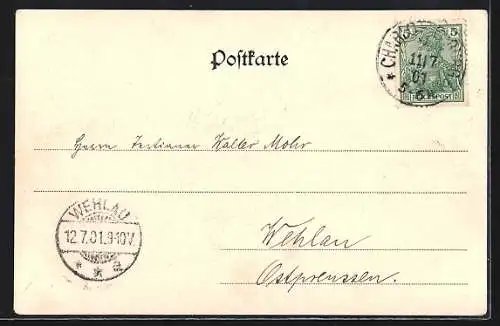 5
Postkarte
11/7
01
5-6N.
Herrn Tertianer Walter Mohr
WEHLAU
12.7.01.9-10V.
* * a
Wehlau
Ostpreussen.